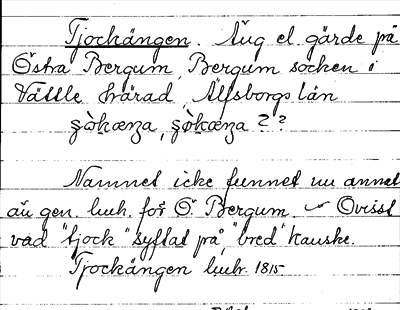 Tjockängen. Äng el. gärde på
Östra Bergum, Bergum socken i
Vättle härad, Älfsborgs län

Namnet icke funnet nu annat
än gen. för Ö. Bergum. Ovisst
vad "tjock" syftat på, "bred" kanske.
Tjockängen 1815